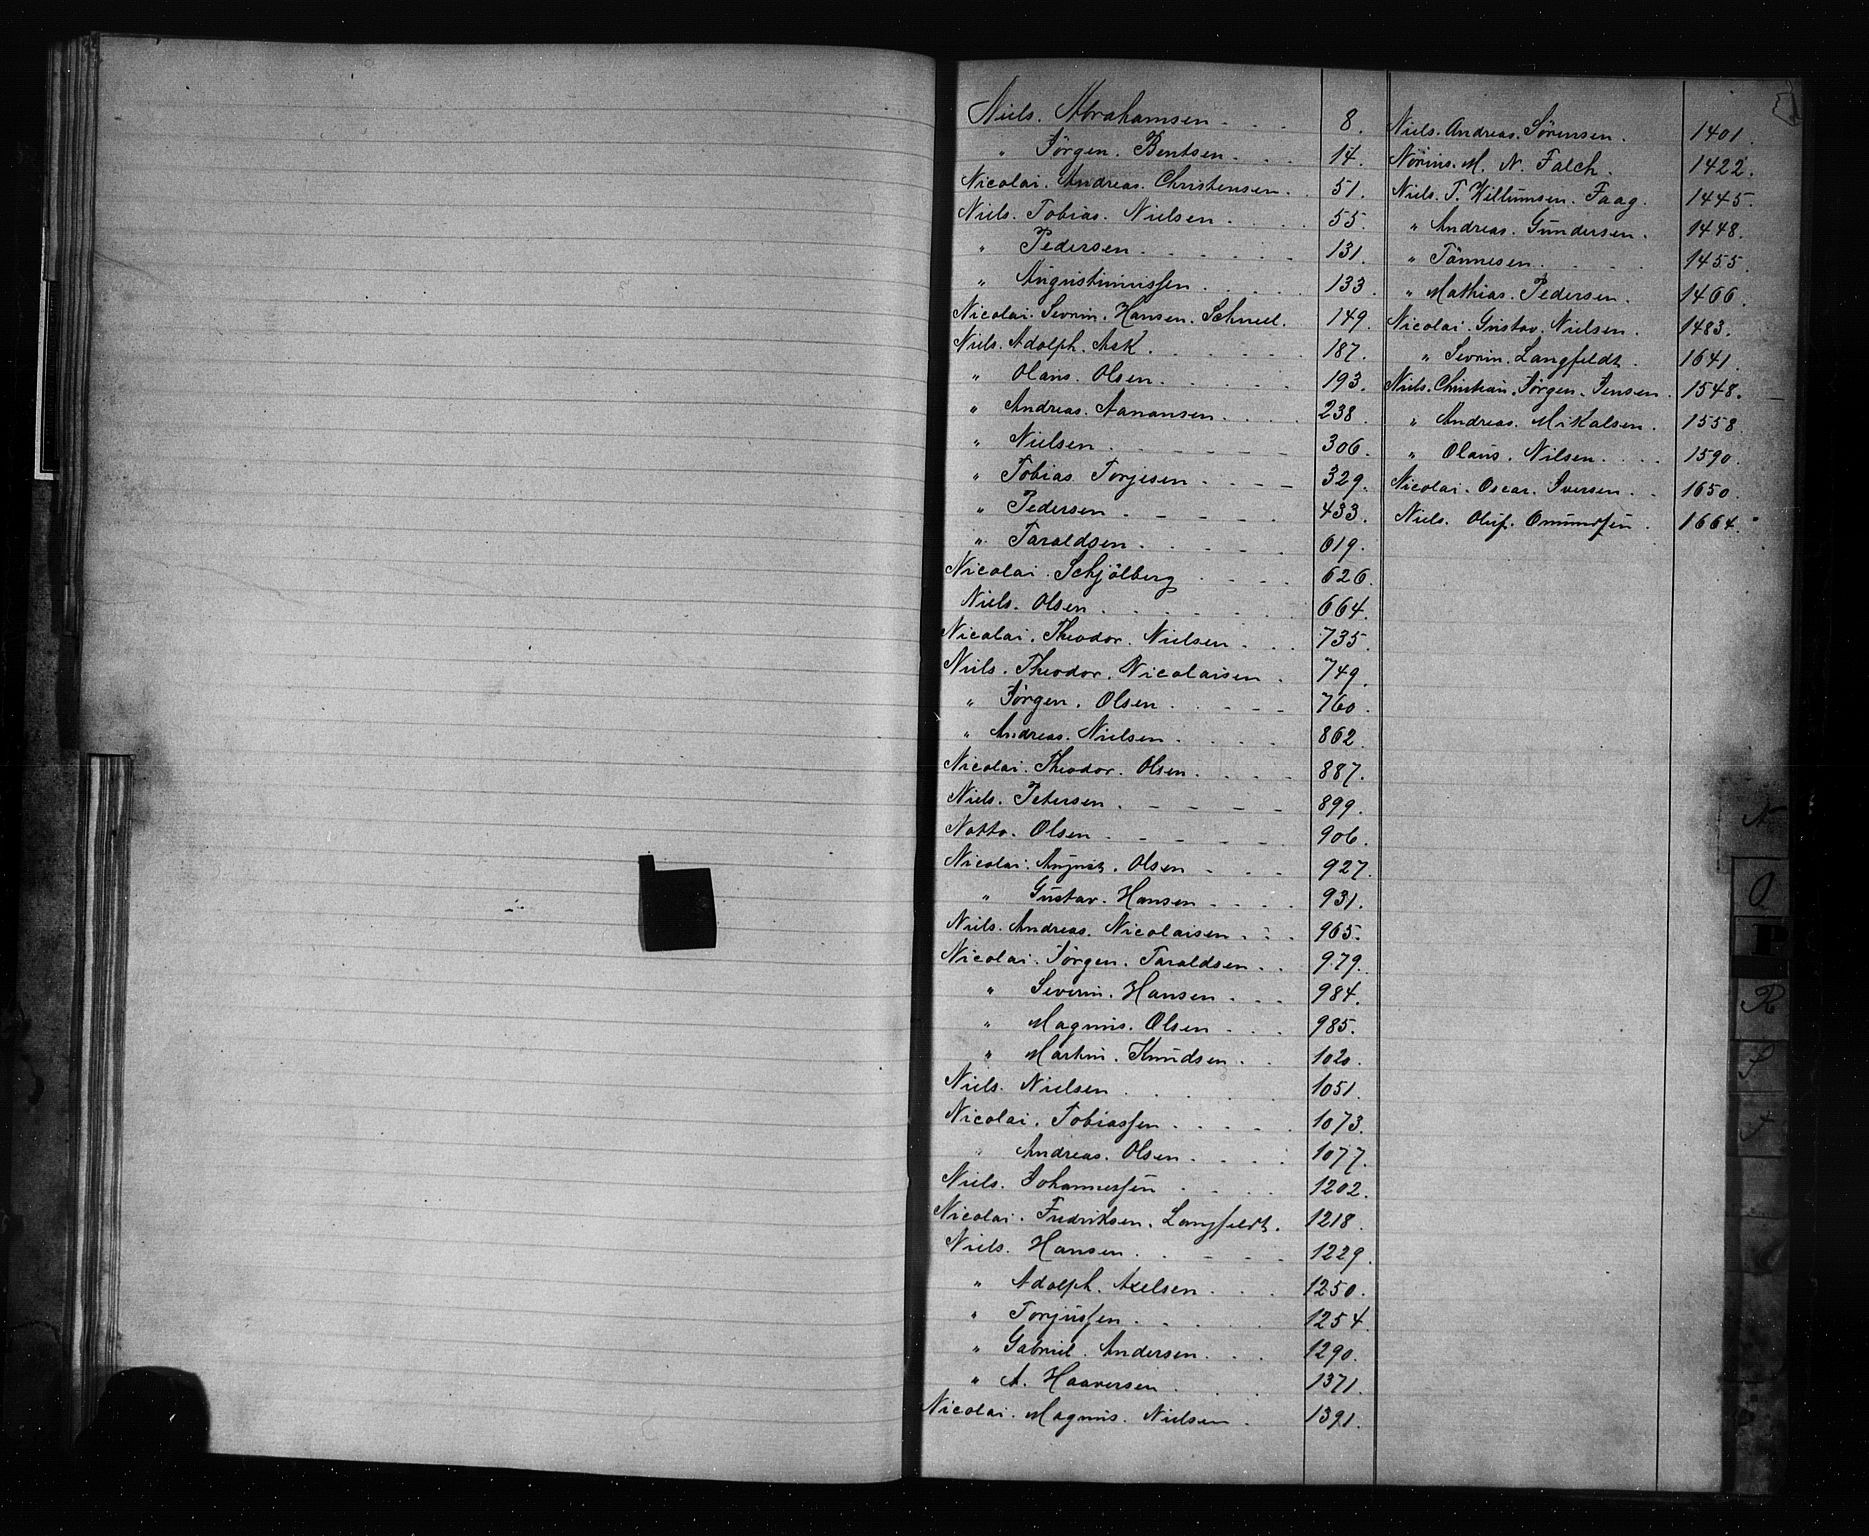 Niels. Abrahamsen . . . 8.
" Jörgen. Bentsen . . . 14.
Nicolai. Andreas. Christensen . 51.
Niels. Tobias. Nielsen . . . 55.
" Pedersen . . . . . . 131.
" Augustinussen . . . . 133.
Nicolai. Sevrin. Hansen. 149.
Niels. Adolph. Ask . . . . . 187.
" Olaus. Olsen . . . . . 193.
" Andreas. Aanansen . . . 238.
" Nielsen . . . . . . 306.
" Tobias. Torjesen . . . . 329.
" Pedersen . . . . . 433.
" Taraldsen . . . . . 619.
Nicolai. Schjölberg . . . . 626.
Niels. Olsen . . . . . . 664.
Nicolai. Theodor. Nielsen . . . 735.
Niels. Theodor. Nicolaisen . 749.
" Jörgen. Olsen . . . . 760.
" Andreas. Nielsen . . . . 862.
Nicolai. Theodor. Olsen . . . . 887.
Niels. Petersen . . . . . 899.
Notto. Olsen . . . . . . 906.
Nicolai. August. Olsen . . . 927.
" Gustav. Hansen . . . . 931.
Niels. Andreas. Nicolaisen . . . 965.
Nicolai. Jörgen. Taraldsen . . 979.
" Severin. Hansen . . . 984.
" Magnus. Olsen . . . 985.
" Martin. Knudsen . . 1020.
Niels. Nielsen . . . . . 1051.
Nicolai. Tobiassen . . . . . 1073.
" Andreas. Olsen . . . . 1077.
Niels. Johannessen . . . . 1202.
Nicolai. Fredriksen. Langfeldt. 1218.
Niels. Hansen . . . . . 1229.
" Adolph. Axelsen . . . 1250.
" Torjussen . . . . . 1254.
" Gabriel. Andersen . . . 1290.
" A. Haaversen . . . 1371.
Nicolai. Magnus. Nielsen . 1391.
Niels. Andreas. Sörensen. 1401.
M. N. Falch. 1422.
Niels. T. Willumsen. Faag. 1445.
" Andreas. Gundersen. 1448.
" Tönnesen . . . . 1455.
" Mathias. Pedersen. 1466.
Nicolai. Gustav. Nielsen. 1483.
" Sevrin. Langfeldt. 1641.
Niels. Christian. Jörgen. Jensen. 1548.
" Andreas. Mikalsen. 1558.
" Olaus. Nilsen . . . . 1590.
Nicolai. Oscar. Iversen . . 1650.
Niels. Oluf. Omundsen . 1664.
N
O
P
R
S
T